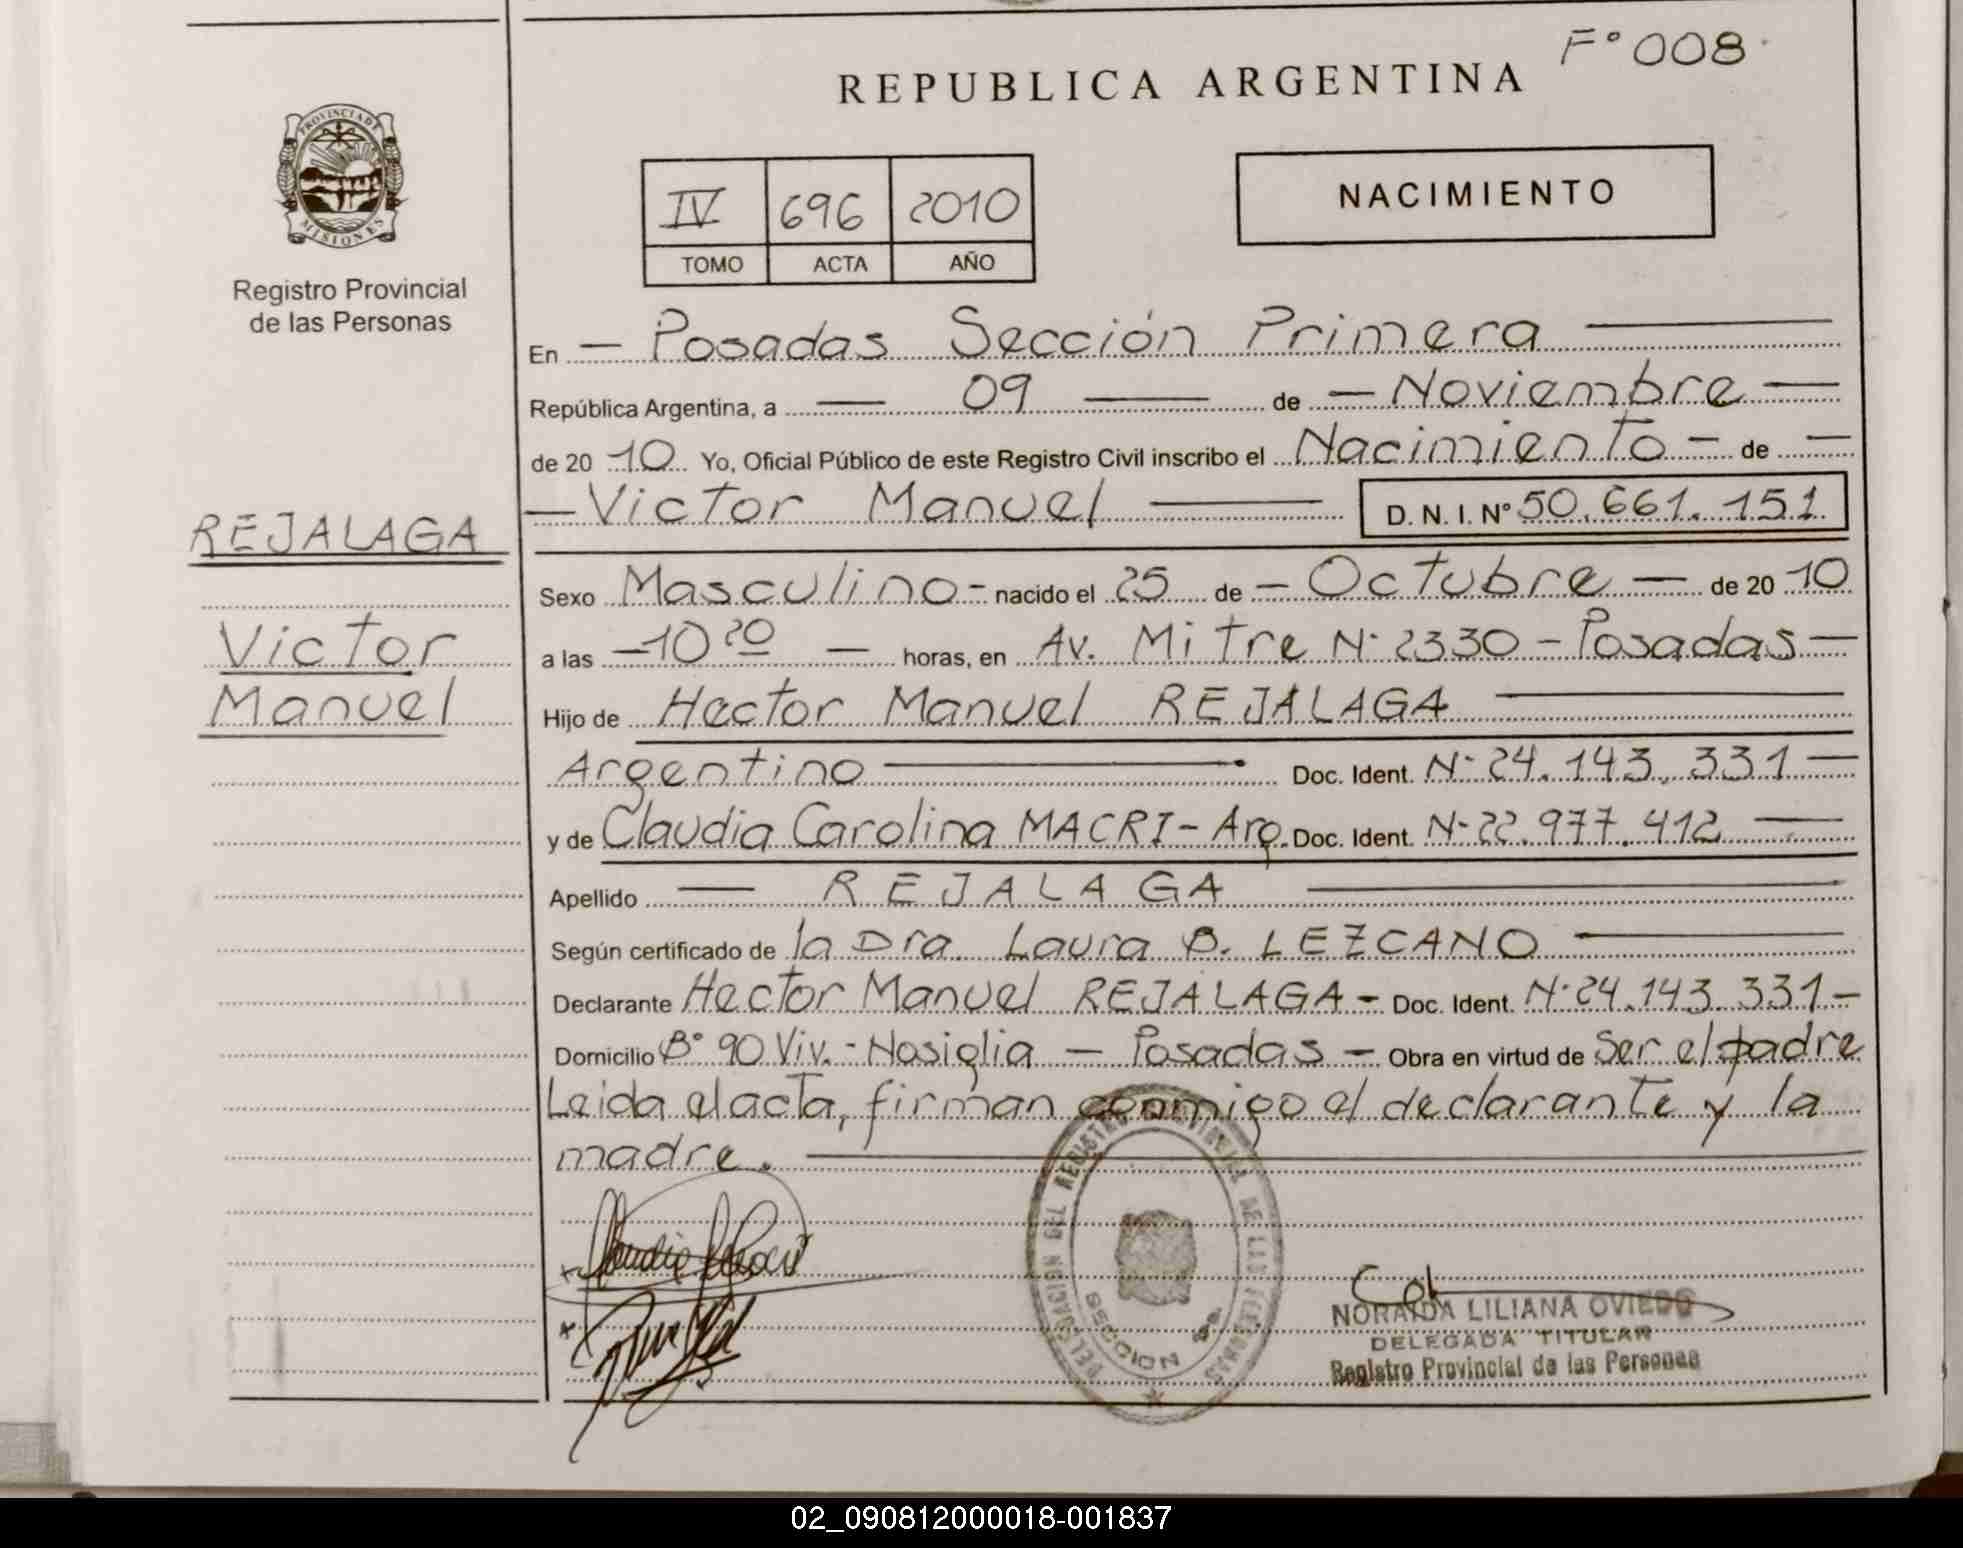 F° 008
REPUBLICA ARGENTINA
PROVINCIA DE
MISIONES
Registro Provincial
de las Personas
IV 696 2010
TOMO ACTA AÑO
NACIMIENTO
En — Posadas Sección Primera —
República Argentina, a — 09 — de — Noviembre —
de 20 10 Yo, Oficial Público de este Registro Civil inscribo el Nacimiento — de —
— Victor Manuel — D. N. I. N° 50.661.151
REJALAGA
Victor
Manuel
Sexo Masculino - nacido el 25 de — Octubre — de 20 10
a las — 10 20 — horas, en Av. Mitre N° 2330 - Posadas —
Hijo de Hector Manuel REJALAGA —
Argentino — Doc. Ident. N° 24.143.331 —
y de Claudia Carolina MACRI - Arg. Doc. Ident. N° 22.977.412 —
Apellido — REJALAGA —
Según certificado de la Dra. Laura B. LEZCANO —
Declarante Hector Manuel REJALAGA - Doc. Ident. N° 24.143.331 —
Domicilio B° 90 Viv. - Nosiglia — Posadas — Obra en virtud de Ser el padre
Leida el acta, firman conmigo el declarante y la
madre. —
DELEGACION DEL REGISTRO PROVINCIAL DE LAS PERSONAS
SECCION 1a.
NORAIDA LILIANA OVIEDO
DELEGADA TITULAR
Registro Provincial de las Personas
02_090812000018-001837